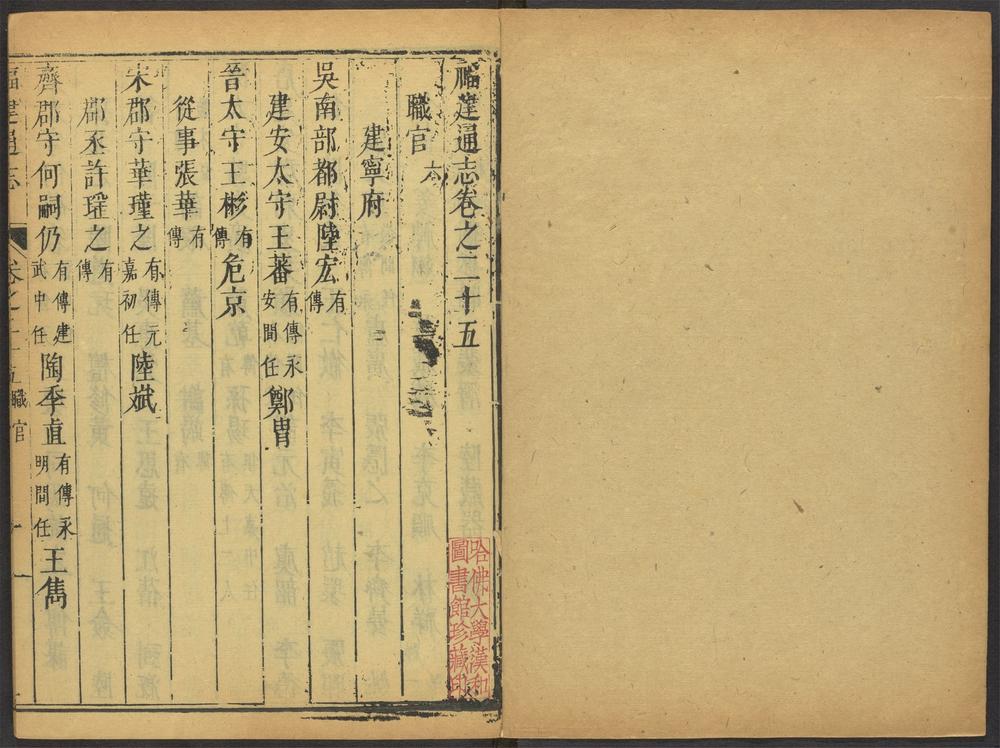 福建通志卷之二十五
職官六
建寧府
吳南部都尉陸宏有傳
建安太守王蕃有傳永安間任鄭胄
晉太守王彬有傳危京
從事張華有傳
宋郡守華瑾之有傳元嘉初任陸斌
郡丞許瑤之有傳
齊郡守何嗣仍有傳建武中任陶季直有傳永明間任王雋
福建通志 卷之二十五 職官 一
哈佛大學漢和
圖書館珍藏印